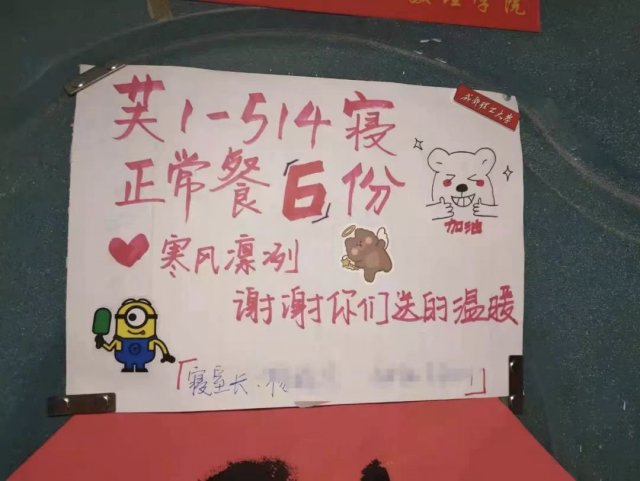 理学院
成都理工大学
芙1-514寝
正常餐「6」份
加油
寒风凛冽
谢谢你们送的温暖
「寝室长